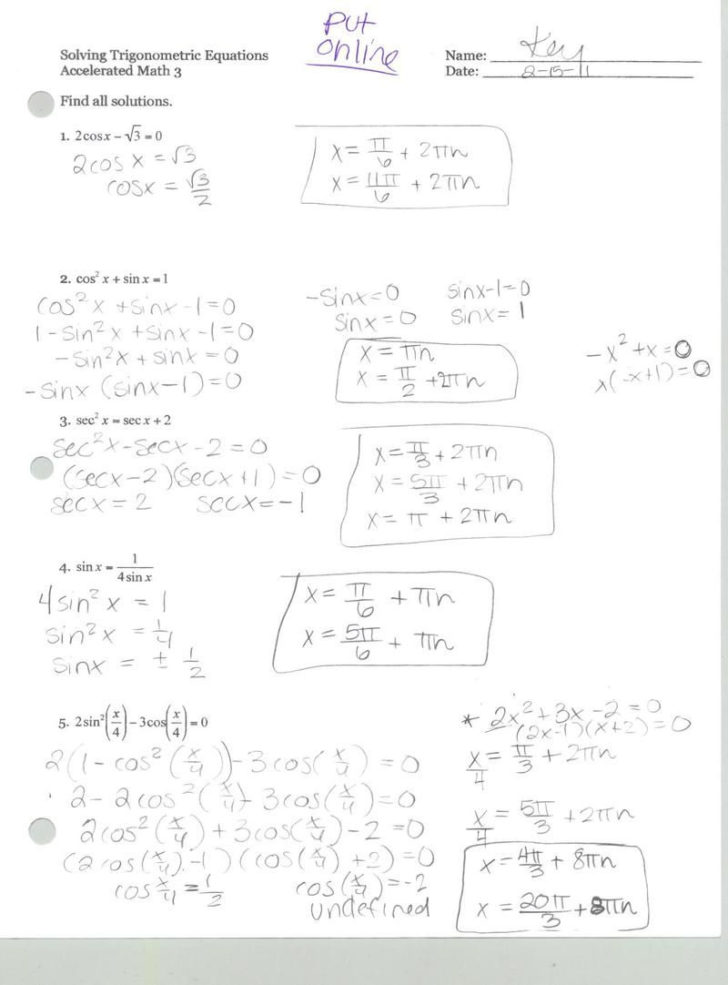 Put
online
Solving Trigonometric Equations
Accelerated Math 3
Name: Key
Date: 2-15-11
Find all solutions.
1. 2cosx − √3 = 0
2cos x = √3
cosx = √3/2
x = π/6 + 2πn
x = 11π/6 + 2πn
2. cos² x + sin x = 1
cos²x + sinx - 1 = 0
1 - sin²x + sinx - 1 = 0
- sin²x + sinx = 0
- sinx (sinx - 1) = 0
-sinx = 0
sinx = 0
sinx - 1 = 0
sinx = 1
x = πn
x = π/2 + 2πn
-x² + x = 0
x(-x+1) = 0
3. sec² x = sec x + 2
sec²x - secx - 2 = 0
(secx - 2)(secx + 1) = 0
secx = 2 secx = -1
x = π/3 + 2πn
x = 5π/3 + 2πn
x = π + 2πn
4. sin x = 1/(4 sin x)
4sin²x = 1
sin²x = 1/4
sinx = ± 1/2
x = π/6 + πn
x = 5π/6 + πn
5. 2sin²(x/4) − 3cos(x/4) = 0
2(1 - cos²(x/4)) - 3cos(x/4) = 0
2 - 2cos²(x/4) - 3cos(x/4) = 0
2cos²(x/4) + 3cos(x/4) - 2 = 0
(2cos(x/4) - 1)(cos(x/4) + 2) = 0
cos x/4 = 1/2
cos(x/4) = -2
undefined
* 2x² + 3x - 2 = 0
(2x-1)(x+2) = 0
x/4 = π/3 + 2πn
x/4 = 5π/3 + 2πn
x = 4π/3 + 8πn
x = 20π/3 + 8πn